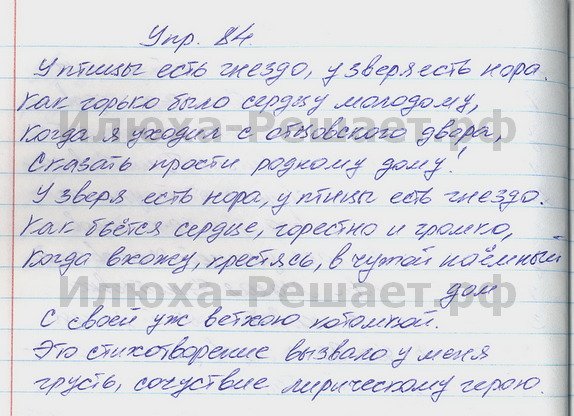 Упр. 84.
У птицы есть гнездо, у зверя есть нора.
Как горько было сердцу молодому,
Когда я уходил с отцовского двора,
Сказать прости родному дому!
У зверя есть нора, у птицы есть гнездо.
Как бьётся сердце, горестно и громко,
Когда вхожу, крестясь, в чужой наёмный
дом
С своей уж ветхою котомкой.
Это стихотворение вызвало у меня
грусть, сочуствие лирическому герою.
Илюха-Решает.рф
Илюха-Решает.рф